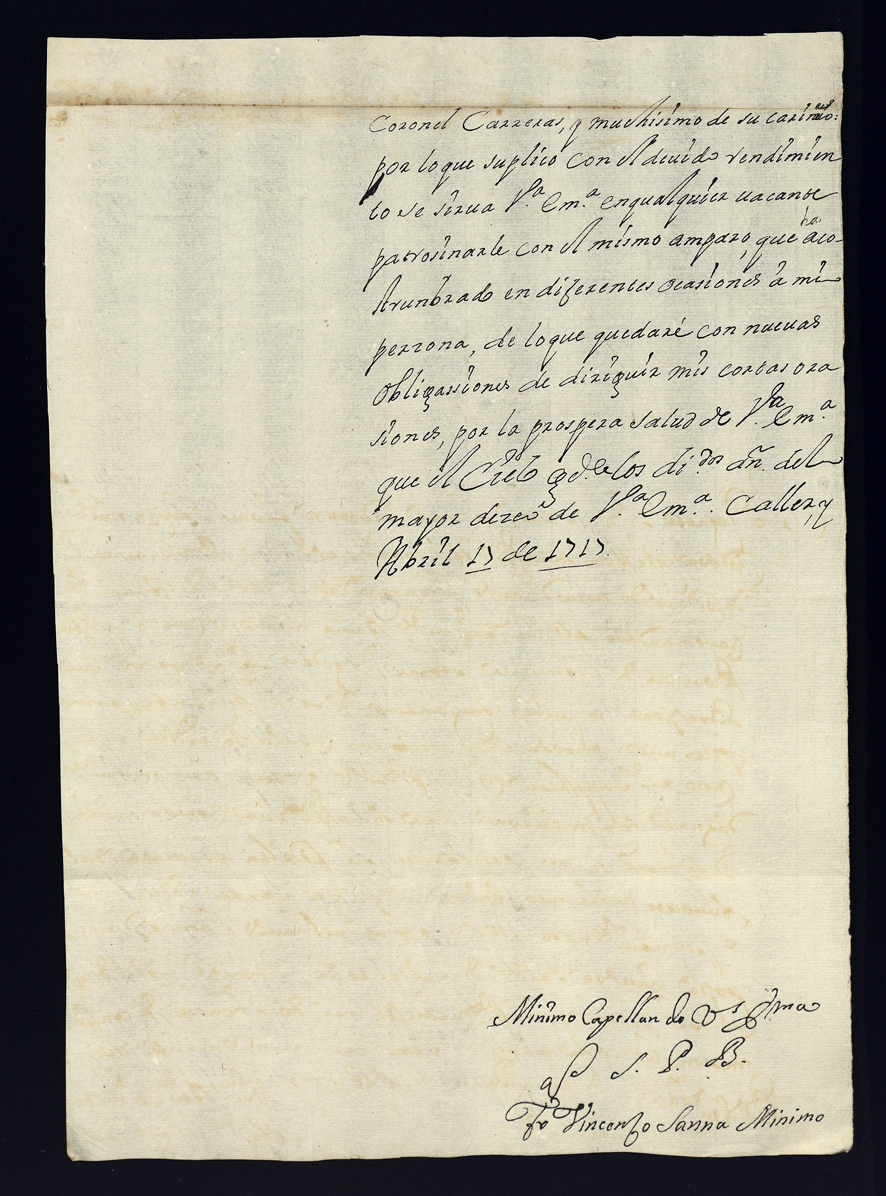 Coronel Carreras, y muchisimo de su cariño:
por loque suplico con el deuido rendimien
to se sirua V.ª Em.ª en qualquier uacante
patrosinarle con el mismo amparo, que ha aco-
strunbrado en diferentes ocasiones â mi
perzona, de loque quedaré con nueuas
obligassiones de diriguir mis cortas ora
siones, por la prospera salud de V.ra Em.ª
que el Cielo g.de los di.dos añ. del
mayor dezeo de V.ª Em.ª. Caller, y
Abril 17 de 1717.
Minimo Capellan de V.s Em.ma
q S. P. B.
Fr Vincenso Sanna Minimo